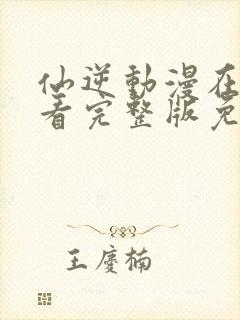 仙逆動漫在
看完整版免
王慶楠